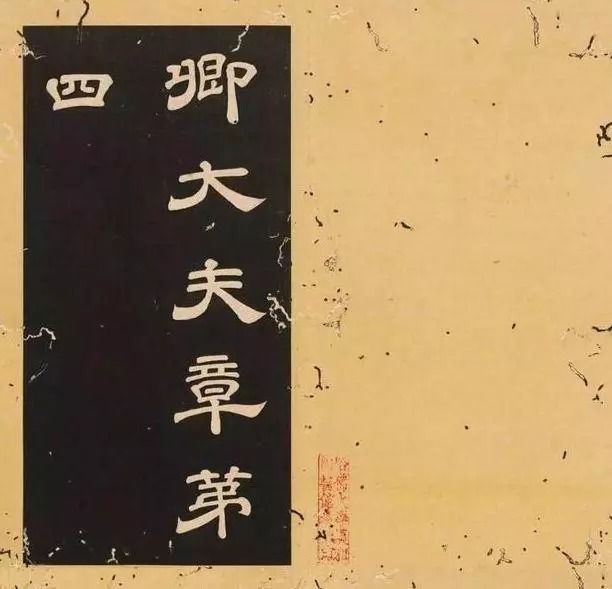 卿大夫章第
四